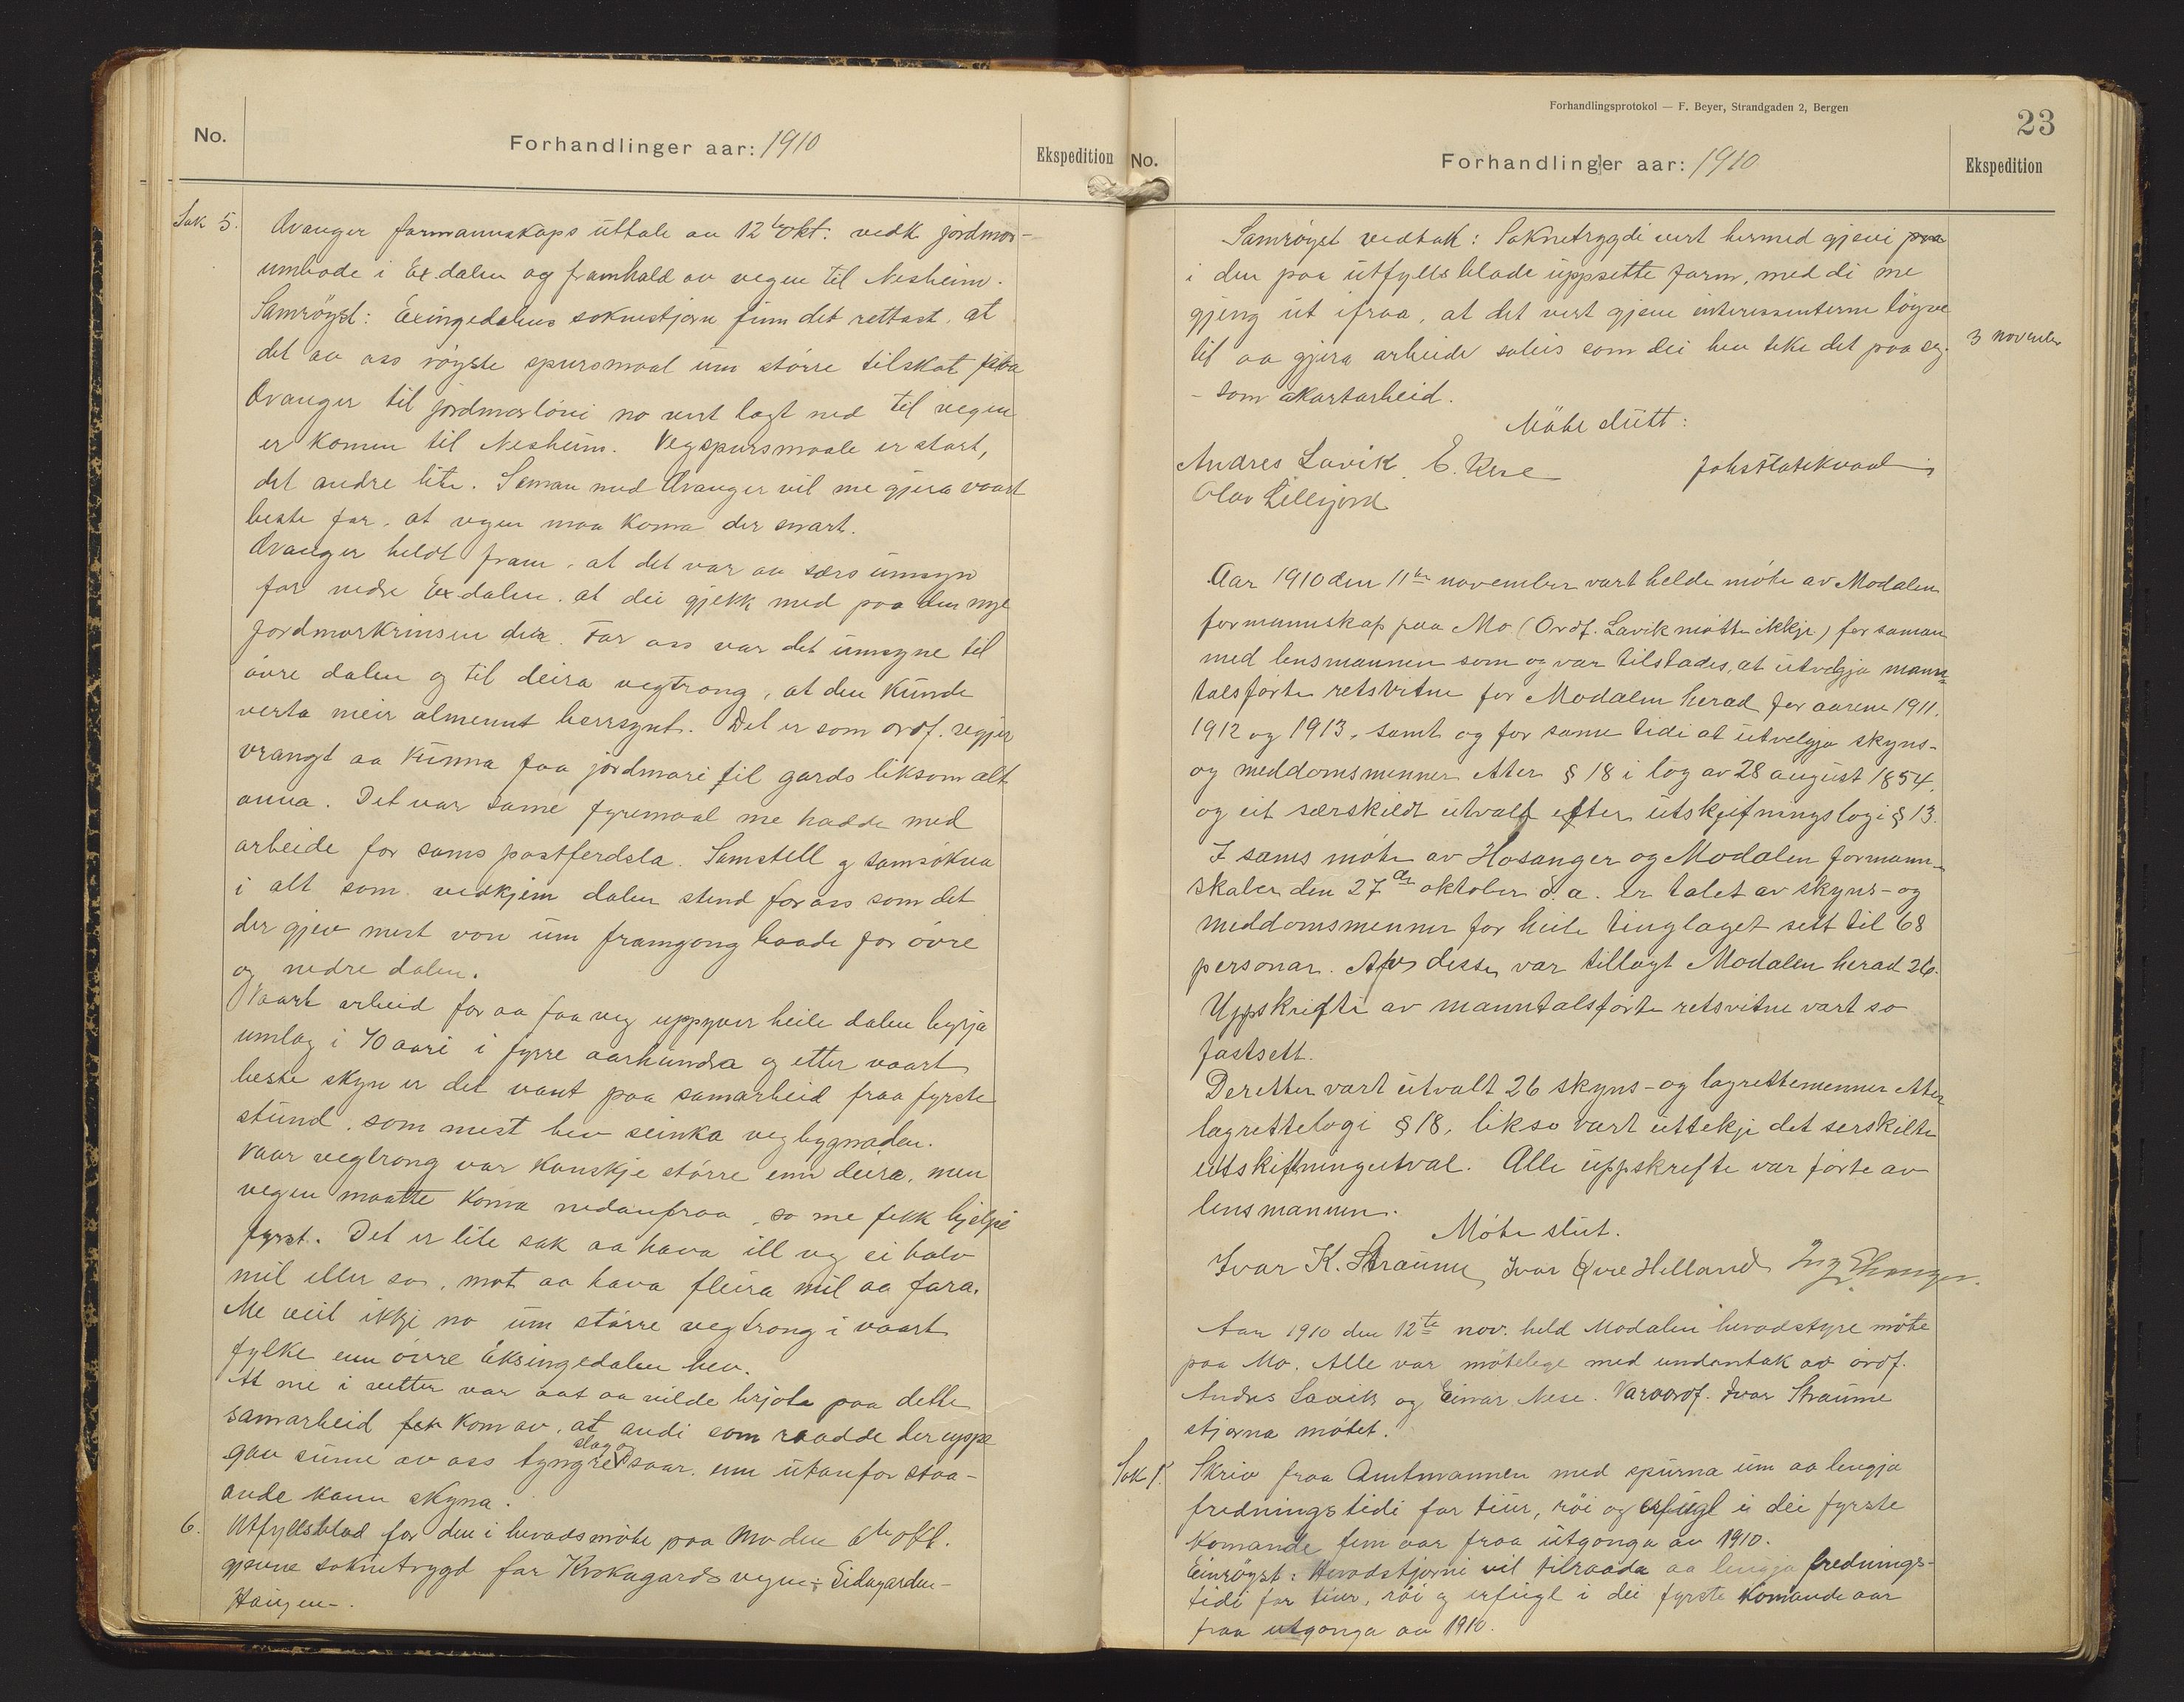 No.
Forhandlinger aar: 1910
Ekspedition
Sak 5.
Evanger formannskaps uttale av 12te okt. vedk. jordmor-
umbode i Exdalen og framhald av vegen til Nesheim.
Samröyst: Exingedalens soknestjorn finn det rettast, at
det av oss röyste spursmaal um större tilskot fraa
Evanger til jordmorlöni no vert lagt ned til vegen
er komen til Nesheim. Vegspursmaale er stort,
det andre lite. Saman med Evanger vil me gjera vaart
beste for, at vegen maa koma der snart.
Evanger heldt fram, at det var av særs umsyn
for nedre Exdalen, at dei gjekk med paa den nye
jordmorkrinsen der. For oss var det umsyne til
övre dalen og til deira vegtrong, at den kunde
verta meir alment berrsynt. Det er som ordf. segjer
vrangt aa kunna faa jordmori til gards liksom alt
anna. Det var same fyremaal me hadde med
arbeide for sams postferdsla. Samstell og samsökna
i alt som vedkjem dalen stend for oss som det
der gjev mest von um framgong baade for övre
og nedre dalen.
Vaart arbeid for aa faa veg uppyver heile dalen byrja
umlag i 70 aari i fyrre aarhundra og etter vaart
beste skyn er det vant paa samarbeid fraa fyrste
stund, som mest hev seinka vegbygnaden.
Vaar vegtrong var kanskje större enn deira, men
vegen maatte koma nedanfraa, so me fekk hjelpi
fyrst. Det er lite sak aa hava ill veg ei halv
mil eller so, mot aa hava fleira mil aa fara.
Me veit ikkje no um större vegtrong i vaart
fylke enn övre Eksingedalen hev.
At me i vetter var aat aa vilde brjota paa dette
samarbeid kom av, at andi som raadde der uppe
gav sume av oss tyngre slag og saar, enn utanfor staa-
ande kann skyna.
6.
Utfyllsblad for den i heradsmöte paa Mo den 6te okt.
gjevne soknetrygd for Krokagards vegen: Eidagarden-
Haugen-.
Forhandlingsprotokol — F. Beyer, Strandgaden 2, Bergen
23
No.
Forhandlinger aar: 1910
Ekspedition
Samröyst vedtak: Soknetrygdi vert hermed gjevi paa
i den paa utfyllsblade uppsette form, med di me
gjeng ut ifraa, at det vert gjeve interessenterne löyve
til aa gjera arbeide soleis som dei hev teke det paa seg
- som akortarbeid.
3 november
Möte slutt:
Andres Lavik E. Nese
Olav Lillejord
Aar 1910 den 11te november vart helde möte av Modalen
formannskap paa Mo (Ordf. Lavik mötte ikkje) for saman
med lensmannen som og var tilstades, at utvelgja mann-
talsförte retsvitne for Modalen herad for aarene 1911,
1912 og 1913, samt og for same tidi at utvelgja skyns-
og meddomsmenner etter § 18 i lög av 28 august 1854,
og eit særskildt utvalg efter utskiftningslogi § 13.
I sams möte av Hosanger og Modalen formann-
skaber den 27de oktober d.a. er talet av skyns- og
meddomsmenner for heile tinglaget sett til 68
personar. Av desse var tillagt Modalen herad 26.
Uppskrifti av manntalsförte retsvitne vart so
fastsett.
Deretter vart utvalt 26 skyns- og lagrettemenner etter
lagrettelogi § 18, likso vart uttekje det serskilte
utskiftningutval. Alle uppskrifte var förte av
lensmannen.
Möte slut.
Ivar K. Straume Ivar Övre Helland
Aar 1910 den 12te nov. held Modalen heradstyre möte
paa Mo. Alle var mötelege med undantak av ordf.
Andres Lavik og Einar Nese. Varaordf. Ivar Straume
stjorna mötet.
Sak 1.
Skriv fraa Amtmannen med spurna um aa lengja
fredningstidi for tiur, röi og orfugl i dei fyrste
komande fem aar fraa utgonga av 1910.
Einröyst: Heradstjorni vil tilraada aa lengja frednings-
tidi for tiur, röi og orfugl i dei fyrste komande aar
fraa utgonga av 1910.